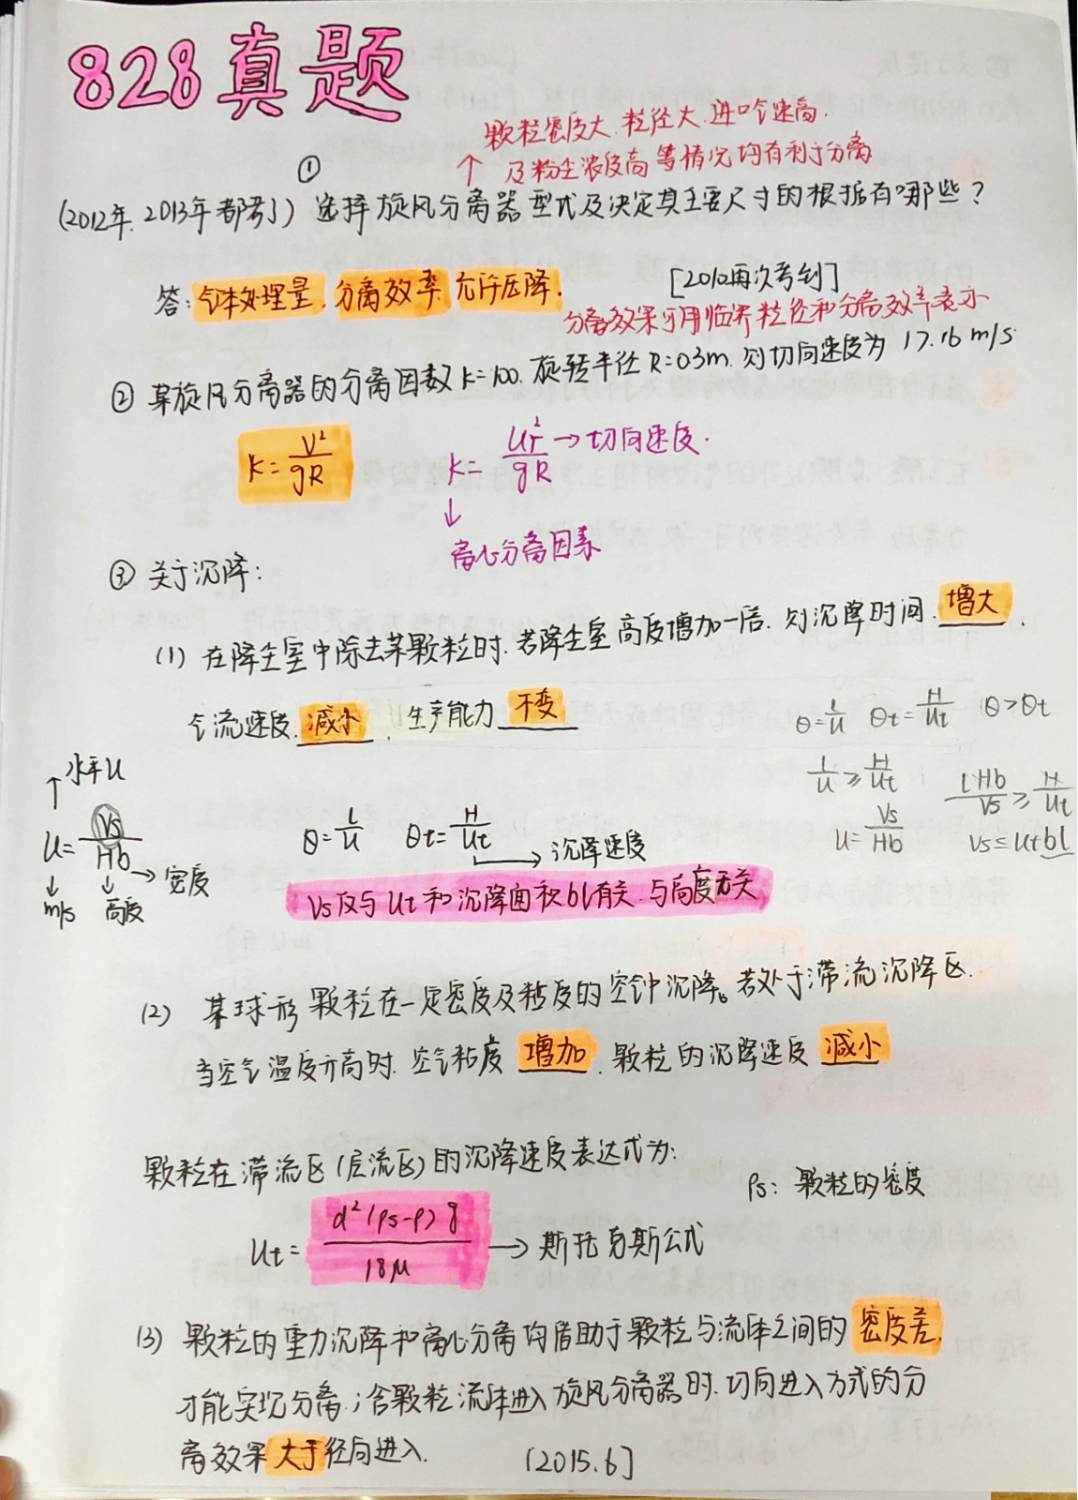 828真题
颗粒密度大.粒径大.进口气速高.
↑ 及粉尘浓度高等情况均有利于分离
①
(2012年.2013年都考了) 选择旋风分离器型式及决定其主要尺寸的根据有哪些?
答:气体处理量.分离效率.允许压降.
[2012再次考到]
分离效果可用临界粒径和分离效率表示
② 某旋风分离器的分离因数K=100.旋转半径R=0.3m.则切向速度为 17.16 m/s.
K=V²/gR
K=Ur²/gR →切向速度.
↓
离心分离因素
③ 关于沉降:
(1) 在降尘室中除去某颗粒时.若降尘室高度增加一倍.则沉降时间.增大.
气流速度.减小.生产能力 不变
θ=l/u θt=H/ut θ>θt
l/u ≥ H/ut
u=Vs/Hb
lHb/Vs ≥ H/ut
Vs≤utbl
↑水平u
u=Vs/Hb →宽度
↓ m/s
↓ 高度
θ=l/u θt=H/ut →沉降速度
Vs仅与 ut 和沉降面积bl有关.与高度无关
(2) 某球形颗粒在一定密度及粘度的空气中沉降。若处于滞流沉降区.
当空气温度升高时.空气粘度 增加.颗粒的沉降速度 减小
颗粒在滞流区(层流区)的沉降速度表达式为:
ρs: 颗粒的密度
ut=d²(ρs-ρ)g/18μ →斯托克斯公式
(3) 颗粒的重力沉降和离心分离均借助于颗粒与流体之间的密度差.
才能实现分离;含颗粒流体进入旋风分离器时.切向进入方式的分
离效果大于径向进入.
[2015.6]